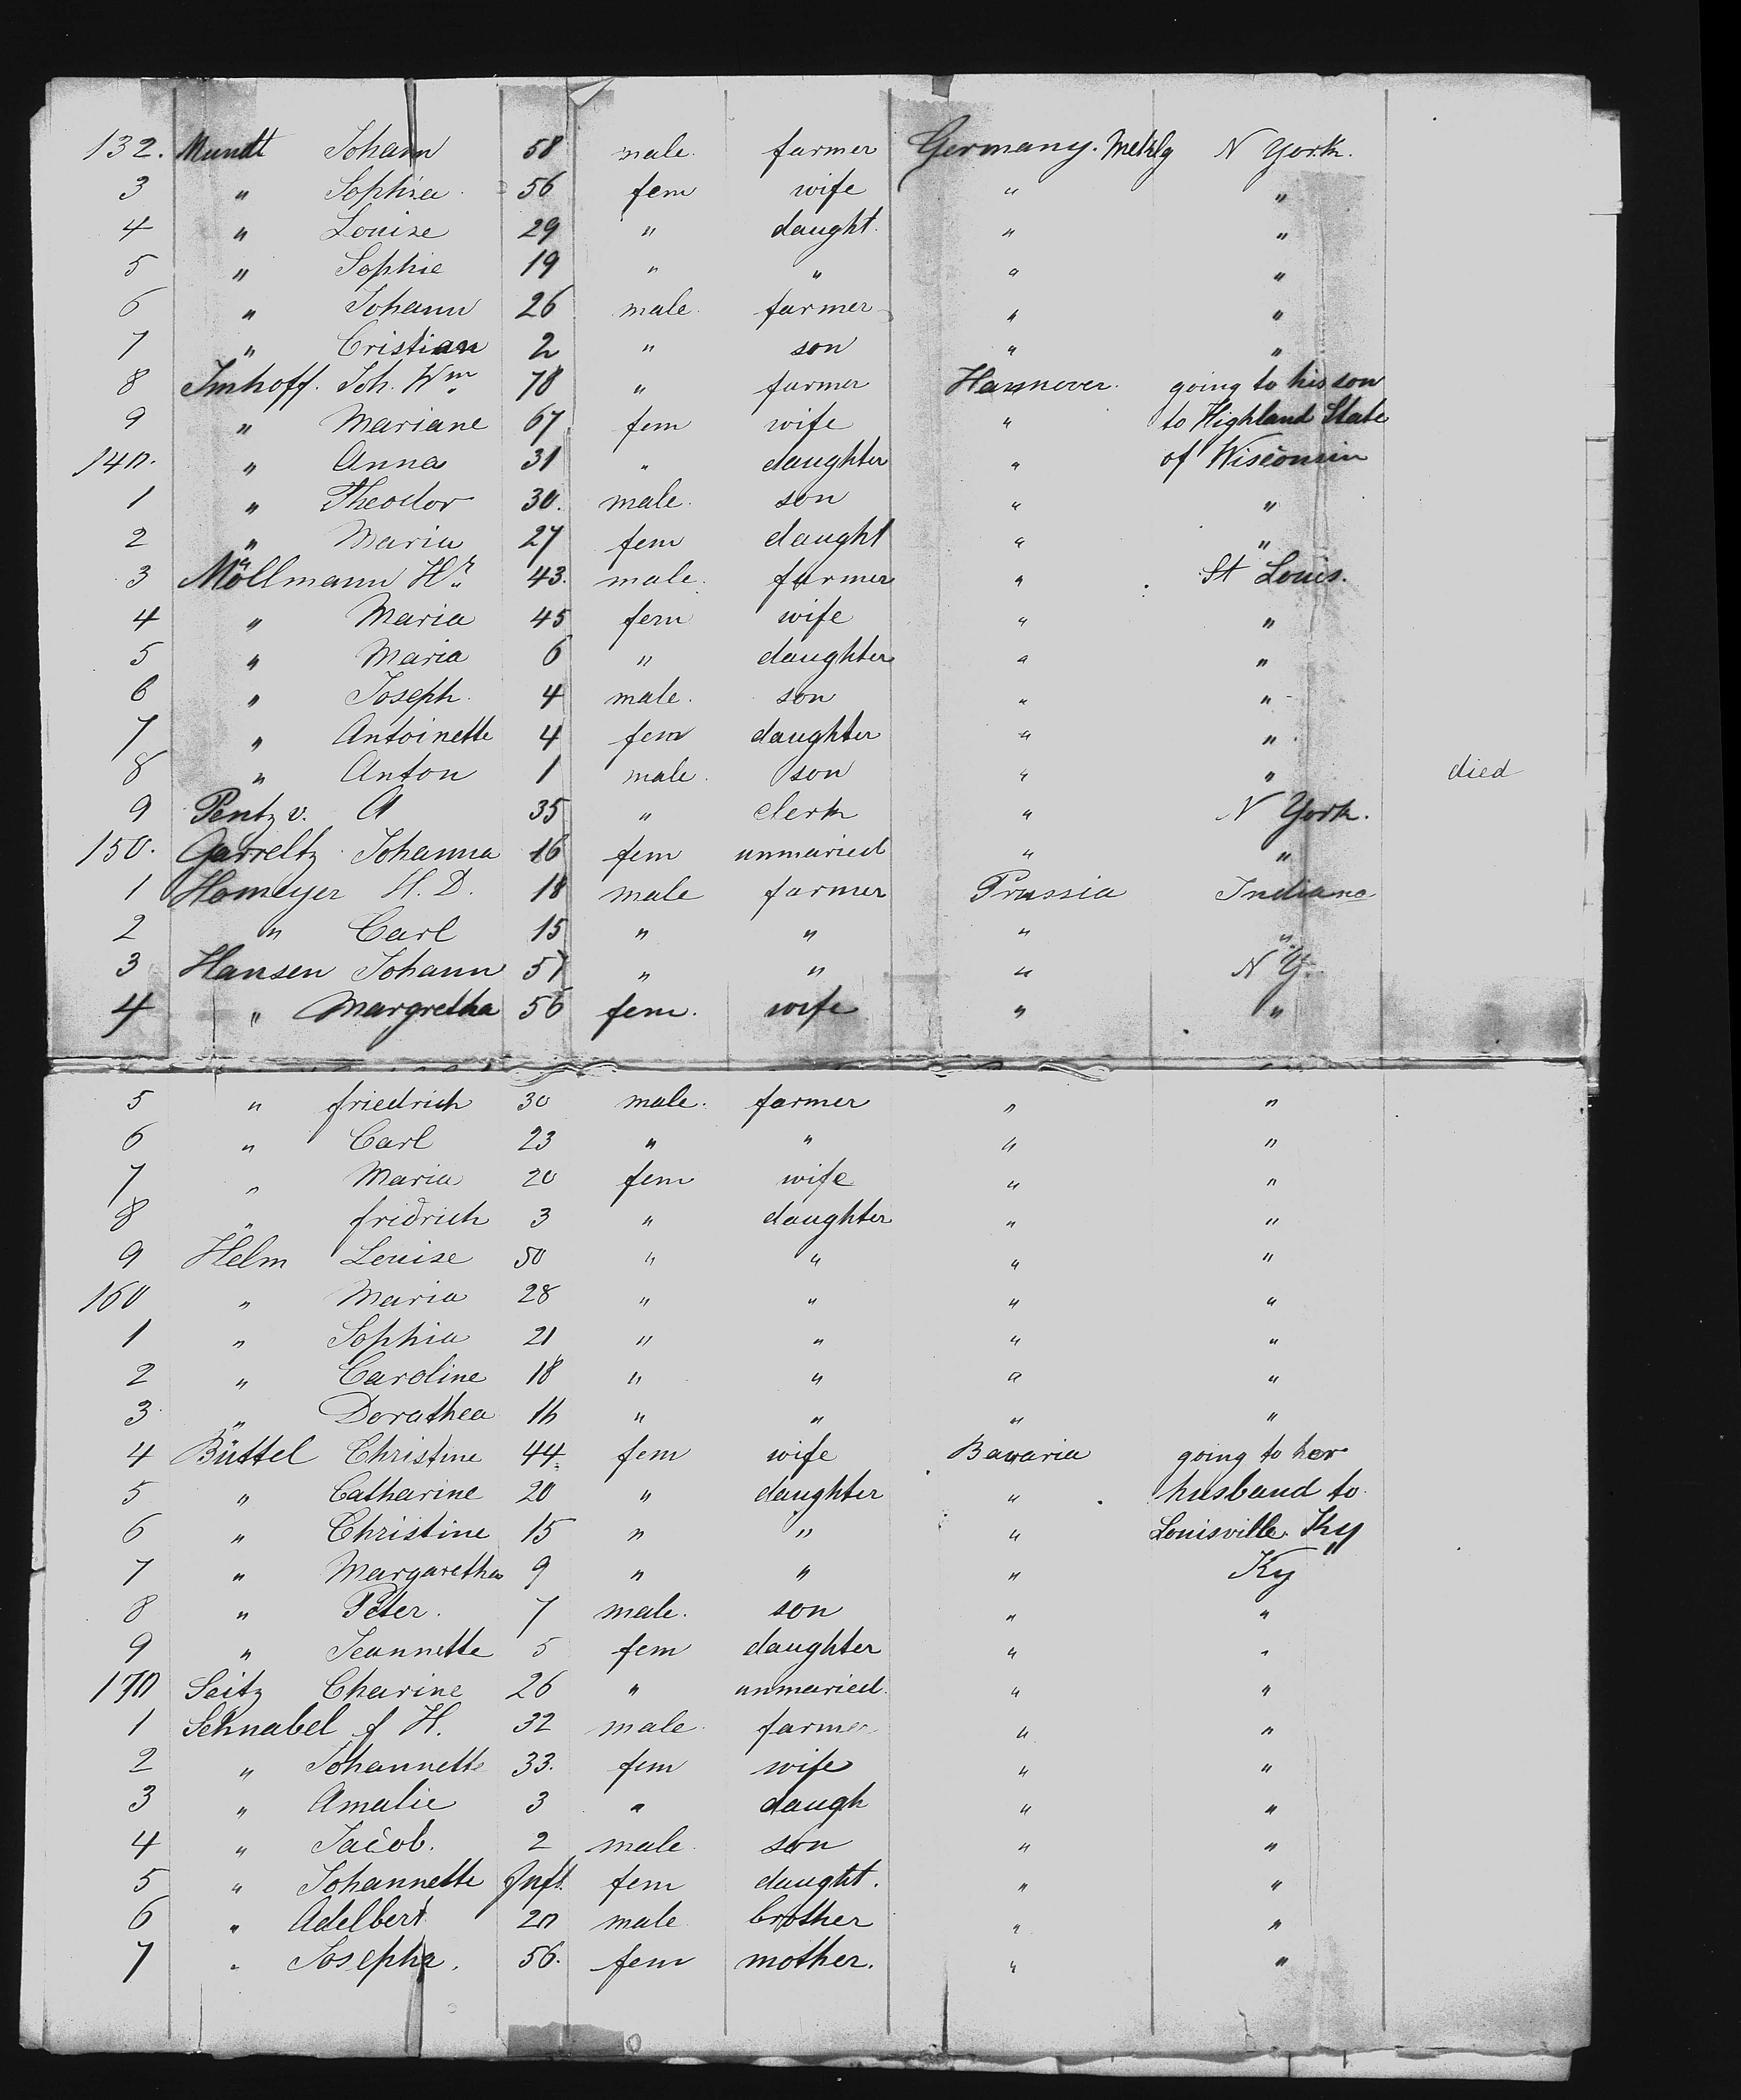 132. Mundt Johann 58 male. farmer Germany. Meklg N York.
3 " Sophia 56 fem wife " "
4 " Louise 29 " daught. " "
5 " Sophie 19 " " " "
6 " Johann 26 male. farmer " "
7 " Cristian 2 " son " "
8 Imhoff. Joh. Wm 78 " farmer Hannover. going to his son
9 " Mariane 67 fem wife " to Highland State
140. " Anna 31 " daughter " of Wisconsin
1 " Theodor 30. male. son " "
2 " Maria 27 fem daught " "
3 Möllmann Hr 43. male. farmer " St Louis.
4 " Maria 45 fem wife " "
5 " Maria 6 " daughter " "
6 " Joseph. 4 male. son " "
7 " Antoinette 4 fem daughter " "
8 " Anton 1 male. son " " died
9 Pentz v. A 35 " clerk " N York.
150. Garreltz Johanna 16 fem unmaried " "
1 Homeyer H. D. 18 male farmer Prussia Indiana
2 " Carl 15 " " " "
3 Hansen Johann 57 " " " N Y.
4 " Margretha 56 fem. wife " "
5 " friedrich 30 male. farmer " "
6 " Carl 23 " " " "
7 " Maria 20 fem wife " "
8 " fridrich 3 " daughter " "
9 Helm Louise 50 " " " "
160 " Maria 28 " " " "
1 " Sophia 21 " " " "
2 " Caroline 18 " " " "
3 " Dorathea 16 " " " "
4 Büttel Christine 44 fem wife Bavaria going to her
5 " Catharine 20 " daughter " husband to
6 " Christine 15 " " " Louisville. Ky
7 " Margaretha 9 " " " Ky
8 " Peter. 7 male. son " "
9 " Jeannette 5 fem daughter " "
170 Seitz Charine 26 " unmaried. " "
1 Schnabel f H. 32 male farmer " "
2 " Johannette 33. fem wife " "
3 " Amalie 3 " daugh " "
4 " Jacob. 2 male. son " "
5 " Johannette Inft. fem daught. " "
6 " Adelbert 20 male brother " "
7 " Josepha. 56. fem mother. " "